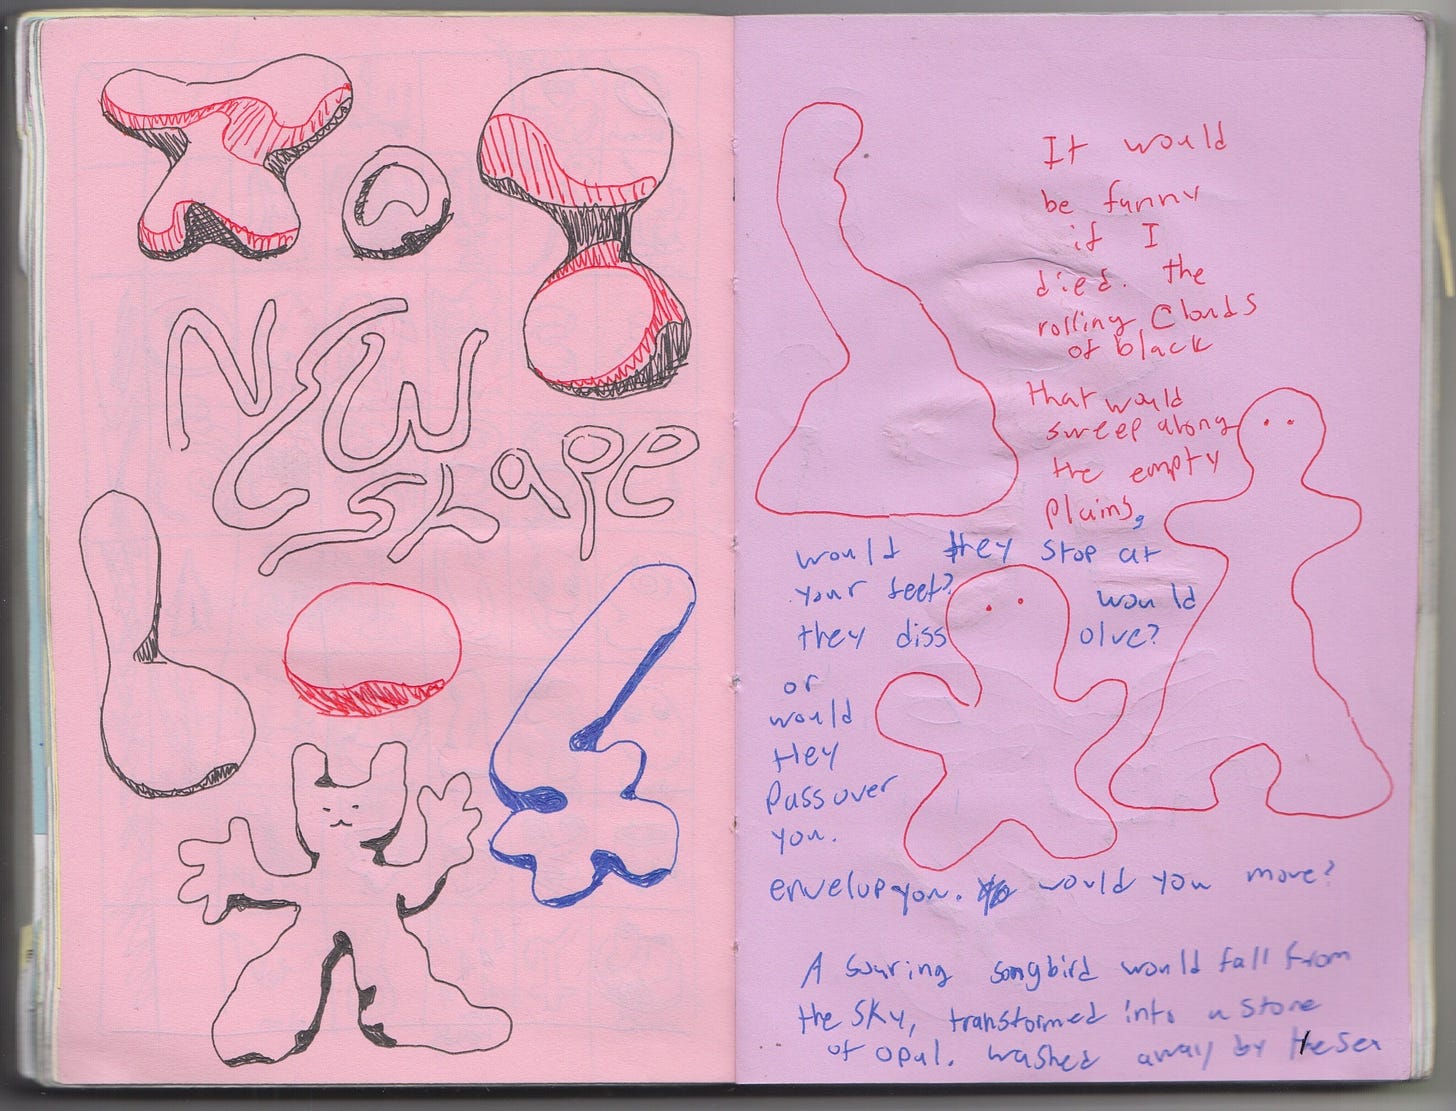 NEW
shape
It would
be funny
if I
died. the
rolling Clouds
of black
that would
sweep along
the empty
plains,
would they stop at
your feet? would
they diss olve?
or
would
they
pass over
you.
envelop you. would you move?
A soaring songbird would fall from
the sky, transformed into a stone
of opal. washed away by the sea